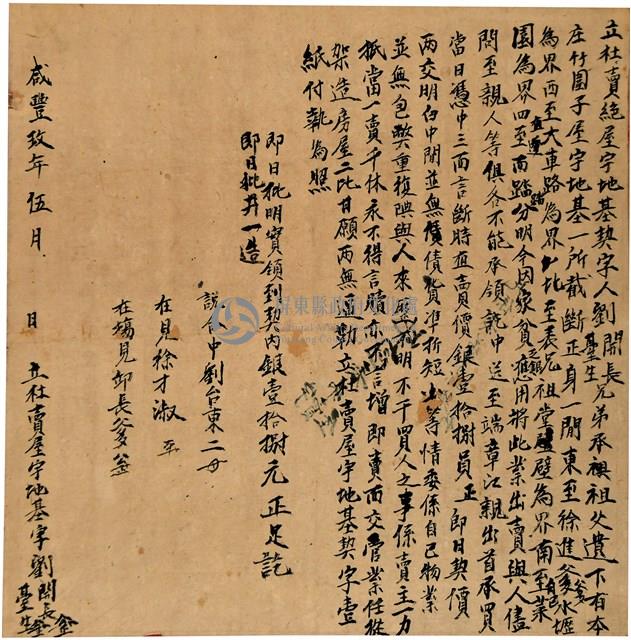 立杜賣絕屋宇地基契字人劉開長臺生兄弟承襖祖父遺下有本
庄竹園子屋宇地基一所截斷正身一間東至徐進爹水壢
為界西至大車路為界北至表兄祖堂壁為界南至業
園為界四至直透而踏分明今因家貧乏銀應用將此業出賣與人儘
問至親人等俱各不能承領託中送至端章江親出首承買
當日憑中三面言斷時值賣價銀壹拾捌員正即日契價
兩交明白中間並無債貨準折短少等情委係自己物業
並無包弊重復典與人來歷不明不干買人之事係賣主一力
抵當一賣千休永不得言贖亦不言增即賣而交管業任從
架造房屋二比甘願兩無逼勒立杜賣屋宇地基契字壹
紙付執為照
即日批明實領到契內銀壹拾捌元正足訖
即日批并一造
說合中劉台東
在見徐才淑
在場見邱長爹
咸豐玖年伍月 日 立杜賣屋宇地基字劉開長臺生
屏東縣政府文化處